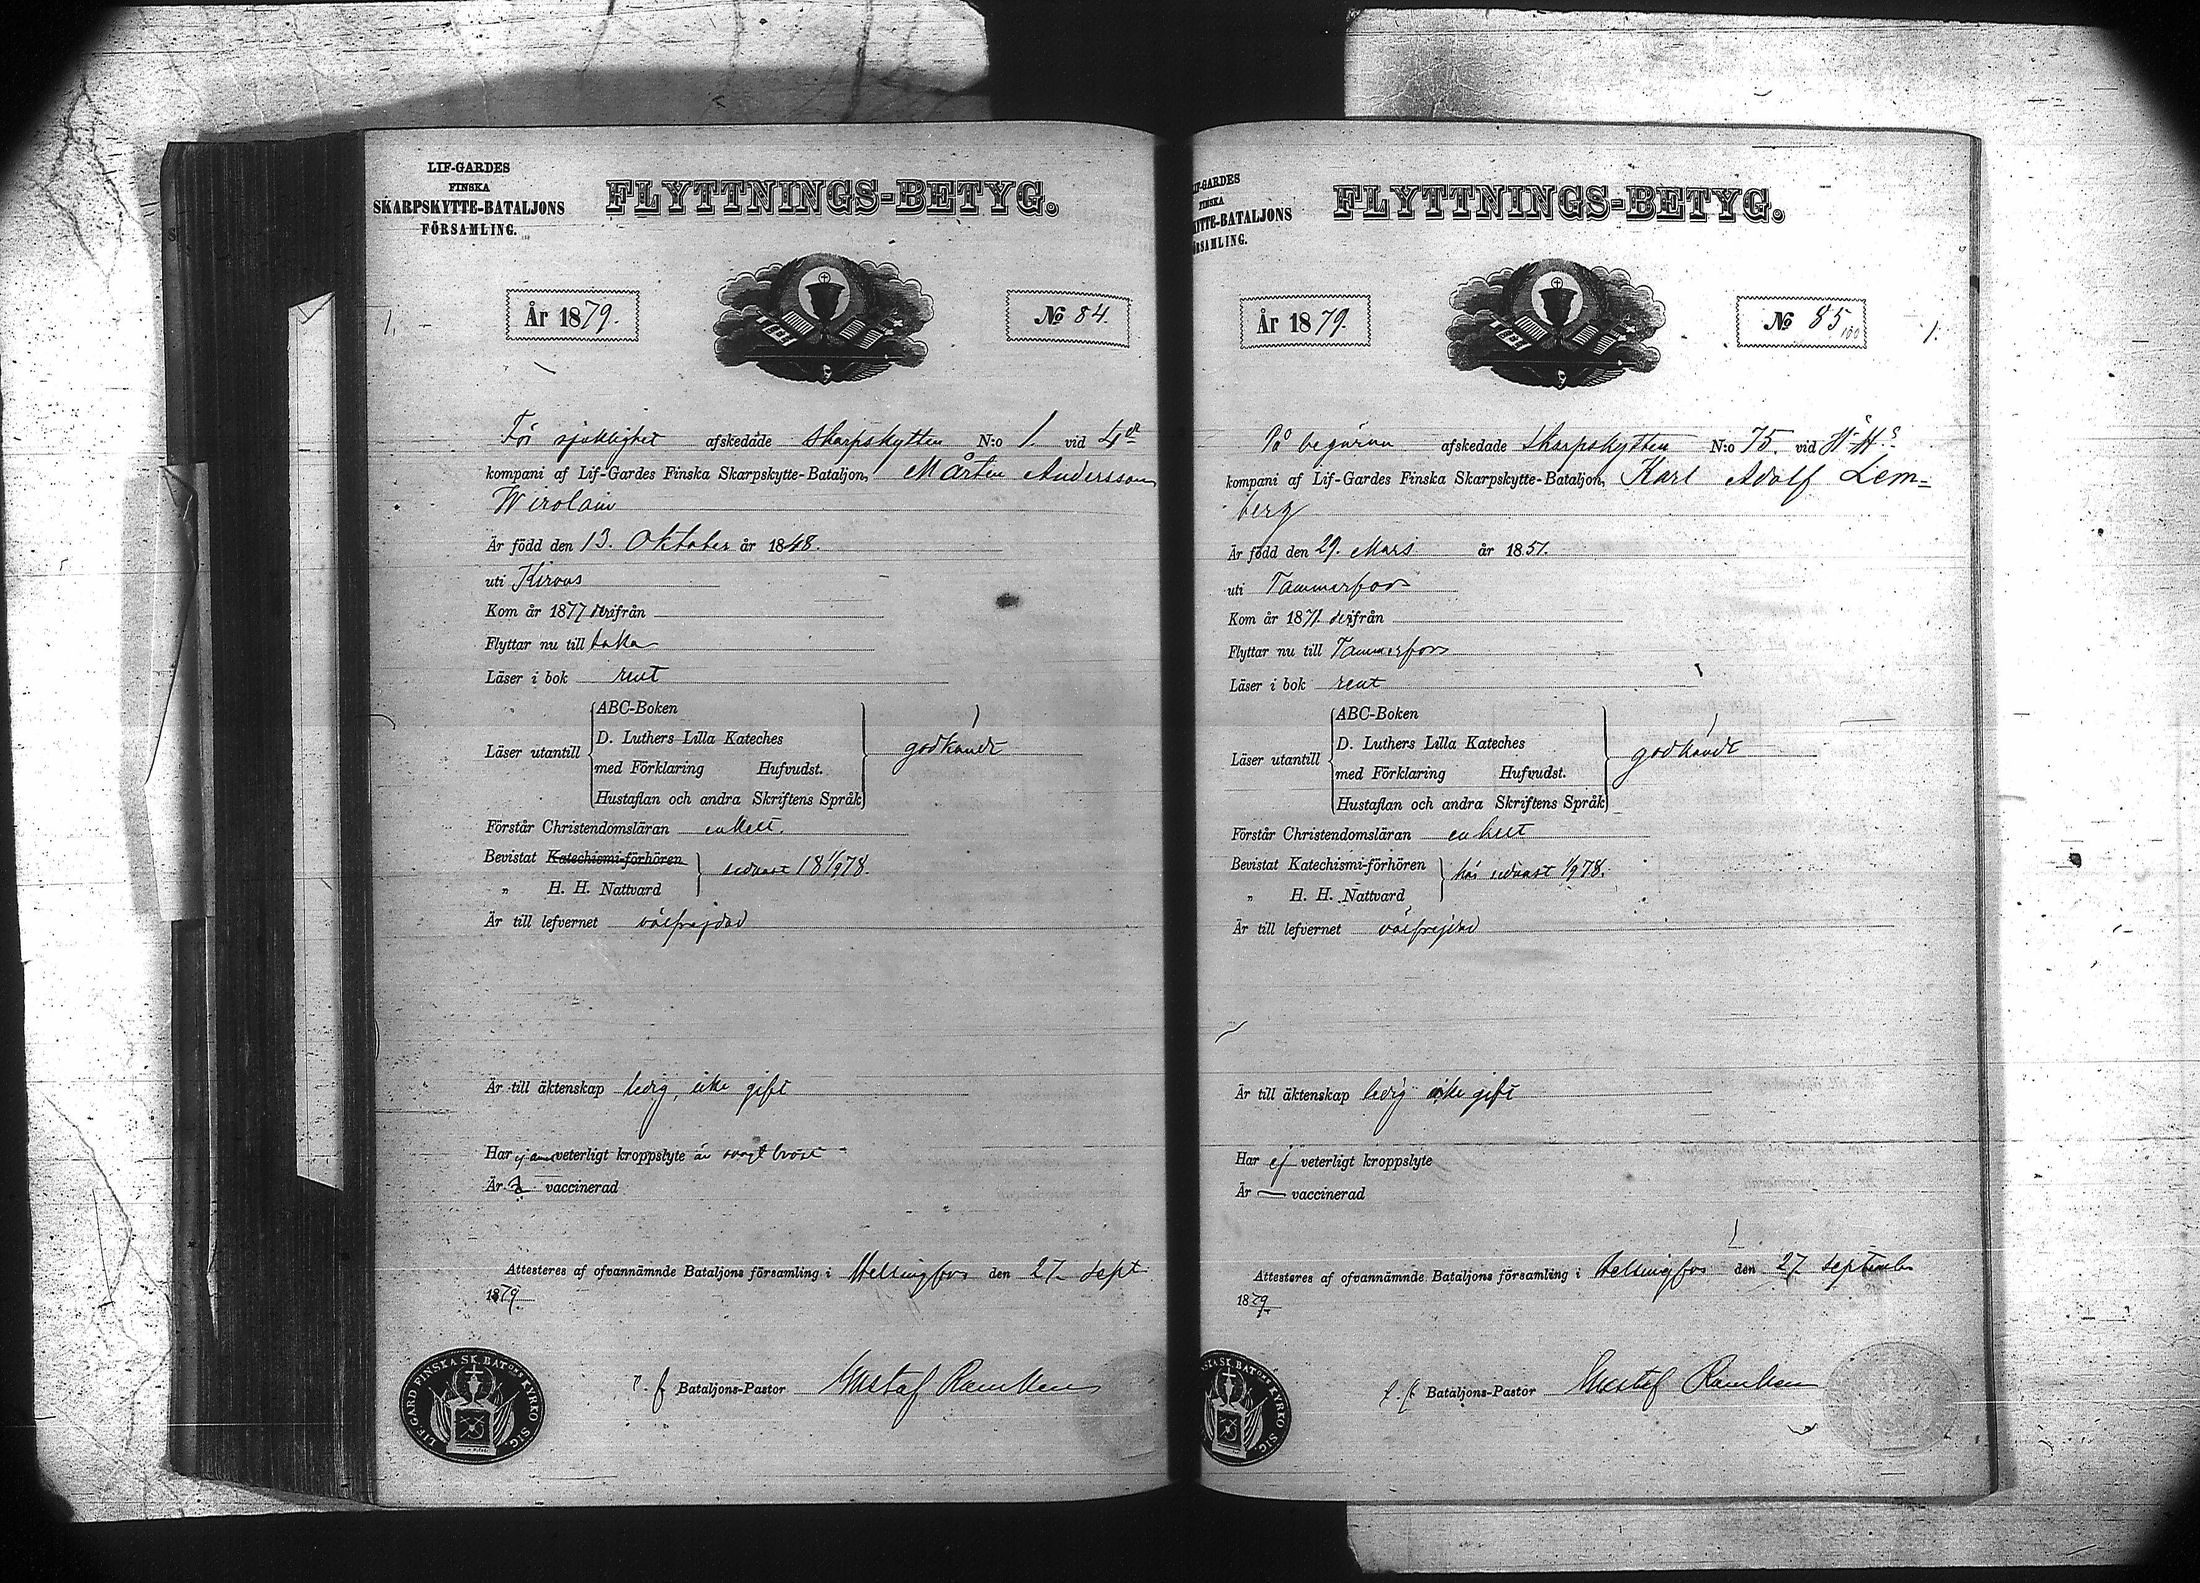 LIF-GARDES
FINSKA
SKARPSKYTTE-BATALJONS
FÖRSAMLING.
FLYTTNINGS-BETYG.
1.
År 1879.
No 84.
För sjuklighet afskedade Skarpskytten N:o 1 vid 4de
kompani af Lif-Gardes Finska Skarpskytte-Bataljon, Mårten Andersson
Wirolain
Är född den 13. Oktober år 1848.
uti Kirons
Kom år 1877 derifrån
Flyttar nu till
Läser i bok rent
ABC-Boken
D. Luthers Lilla Kateches
Läser utantill godkändt
med Förklaring Hufvudst.
Hustaflan och andra Skriftens Språk
Förstår Christendomsläran enkelt.
Bevistat Katechismi-förhören sednast 18 1/9 78.
„ H. H. Nattvard
Är till lefvernet välfrejdad
Är till äktenskap ledig, icke gift
Har veterligt kroppslyte är svagt bröst
Är vaccinerad
Attesteres af ofvannämnde Bataljons församling i Helsingfors den 27 Sept
1879.
LIF. GARD FINSKA SK. BATons KYRKO SIG.
t. f. Bataljons-Pastor Gustaf
LIF-GARDES
FINSKA
YTTE-BATALJONS
RSAMLING.
FLYTTNINGS-BETYG.
År 1879.
No 85
100
1.
På begäran afskedade Skarpskytten N:o 75. vid H. H:s
kompani af Lif-Gardes Finska Skarpskytte-Bataljon, Karl Adolf Lem=
berg
Är född den 29. Mars år 1851.
uti Tammerfors
Kom år 1871. derifrån
Flyttar nu till Tammerfors
Läser i bok rent
ABC-Boken
D. Luthers Lilla Kateches
Läser utantill godkändt
med Förklaring Hufvudst.
Hustaflan och andra Skriftens Språk
Förstår Christendomsläran enkelt
Bevistat Katechismi-förhören här sednast 1/9 78.
„ H. H. Nattvard
Är till lefvernet välfrejdad
Är till äktenskap ledig icke gift
Har ej veterligt kroppslyte
Är — vaccinerad
Attesteres af ofvannämnde Bataljons församling i Helsingfors den 27 September
1879.
SKA SK. BATons KYRKO SIG.
t. f. Bataljons-Pastor Gustaf